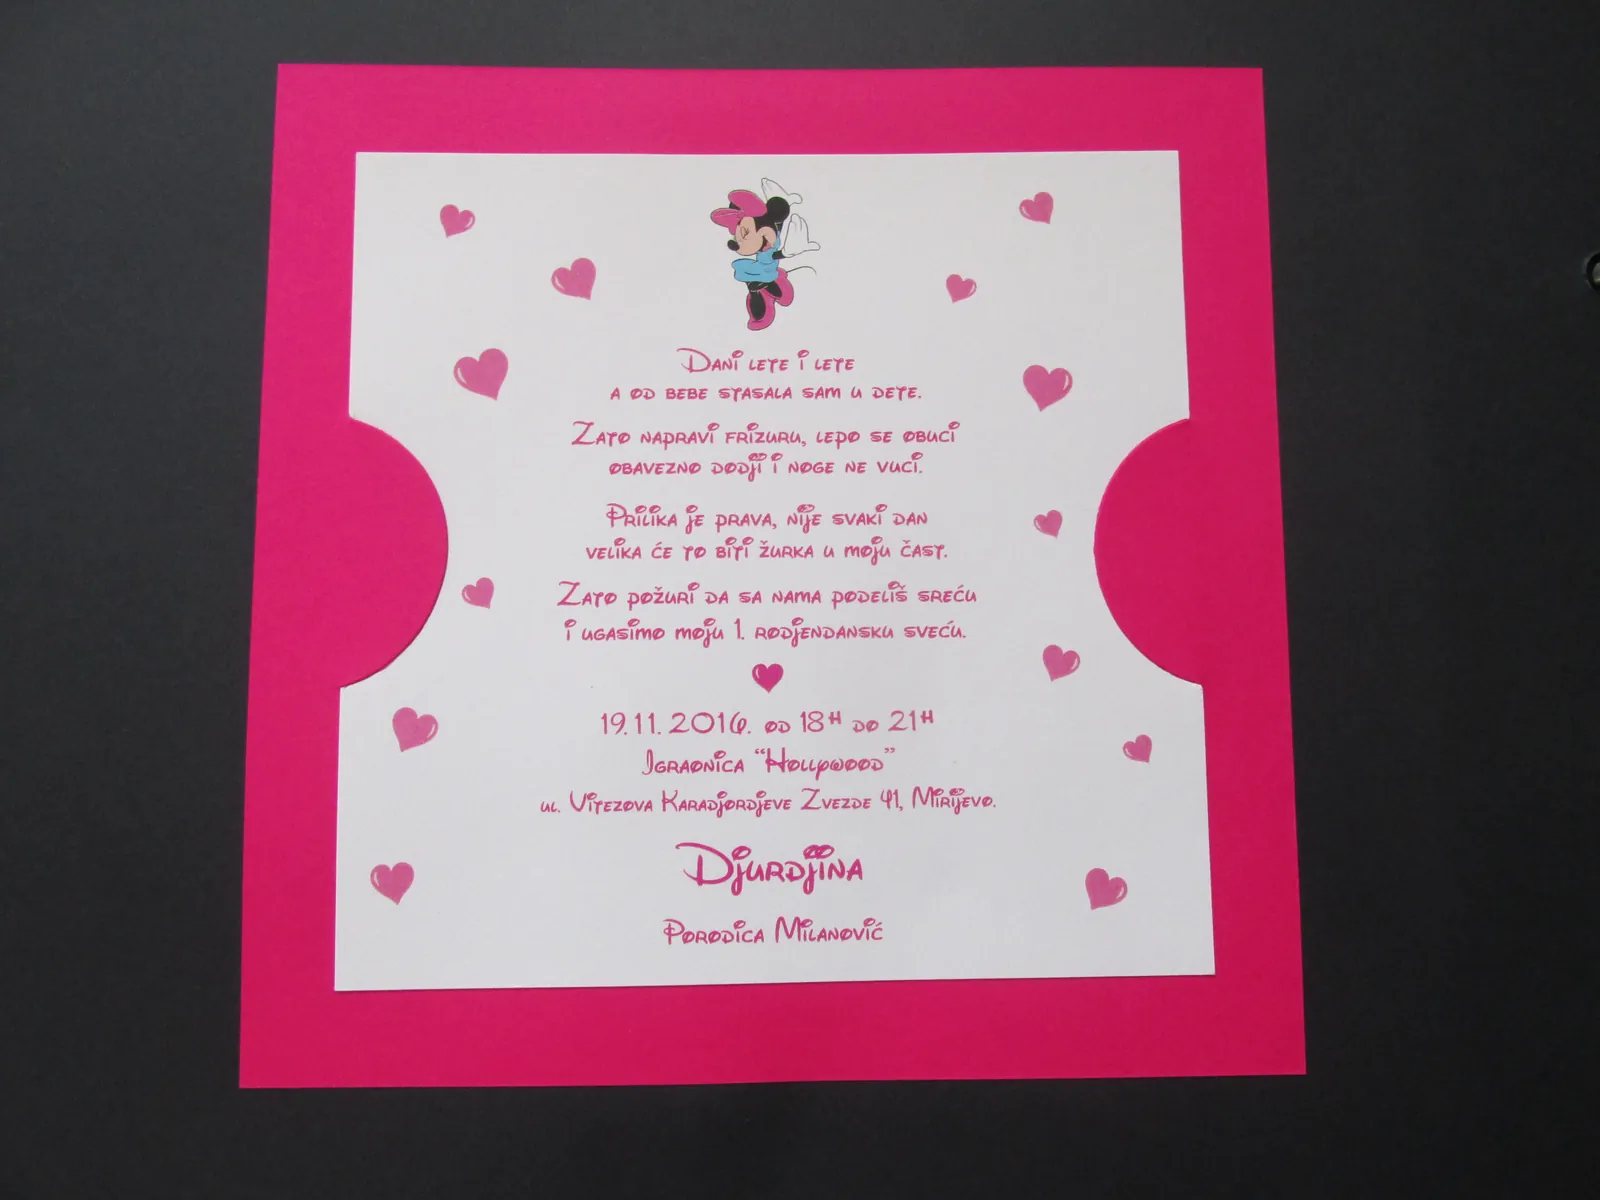 Dani lete i lete
a od bebe stasala sam u dete.
Zato napravi frizuru, lepo se obuci
obavezno dodji i noge ne vuci.
Prilika je prava, nije svaki dan
velika će to biti žurka u moju čast.
Zato požuri da sa nama podeliš sreću
i ugasimo moju 1. rodjendansku sveću.
19.11.2016. od 18h do 21h
Igraonica “Hollywood”
ul. Vitezova Karadjordjeve Zvezde 41, Mirijevo.
Djurdjina
Porodica Milanović